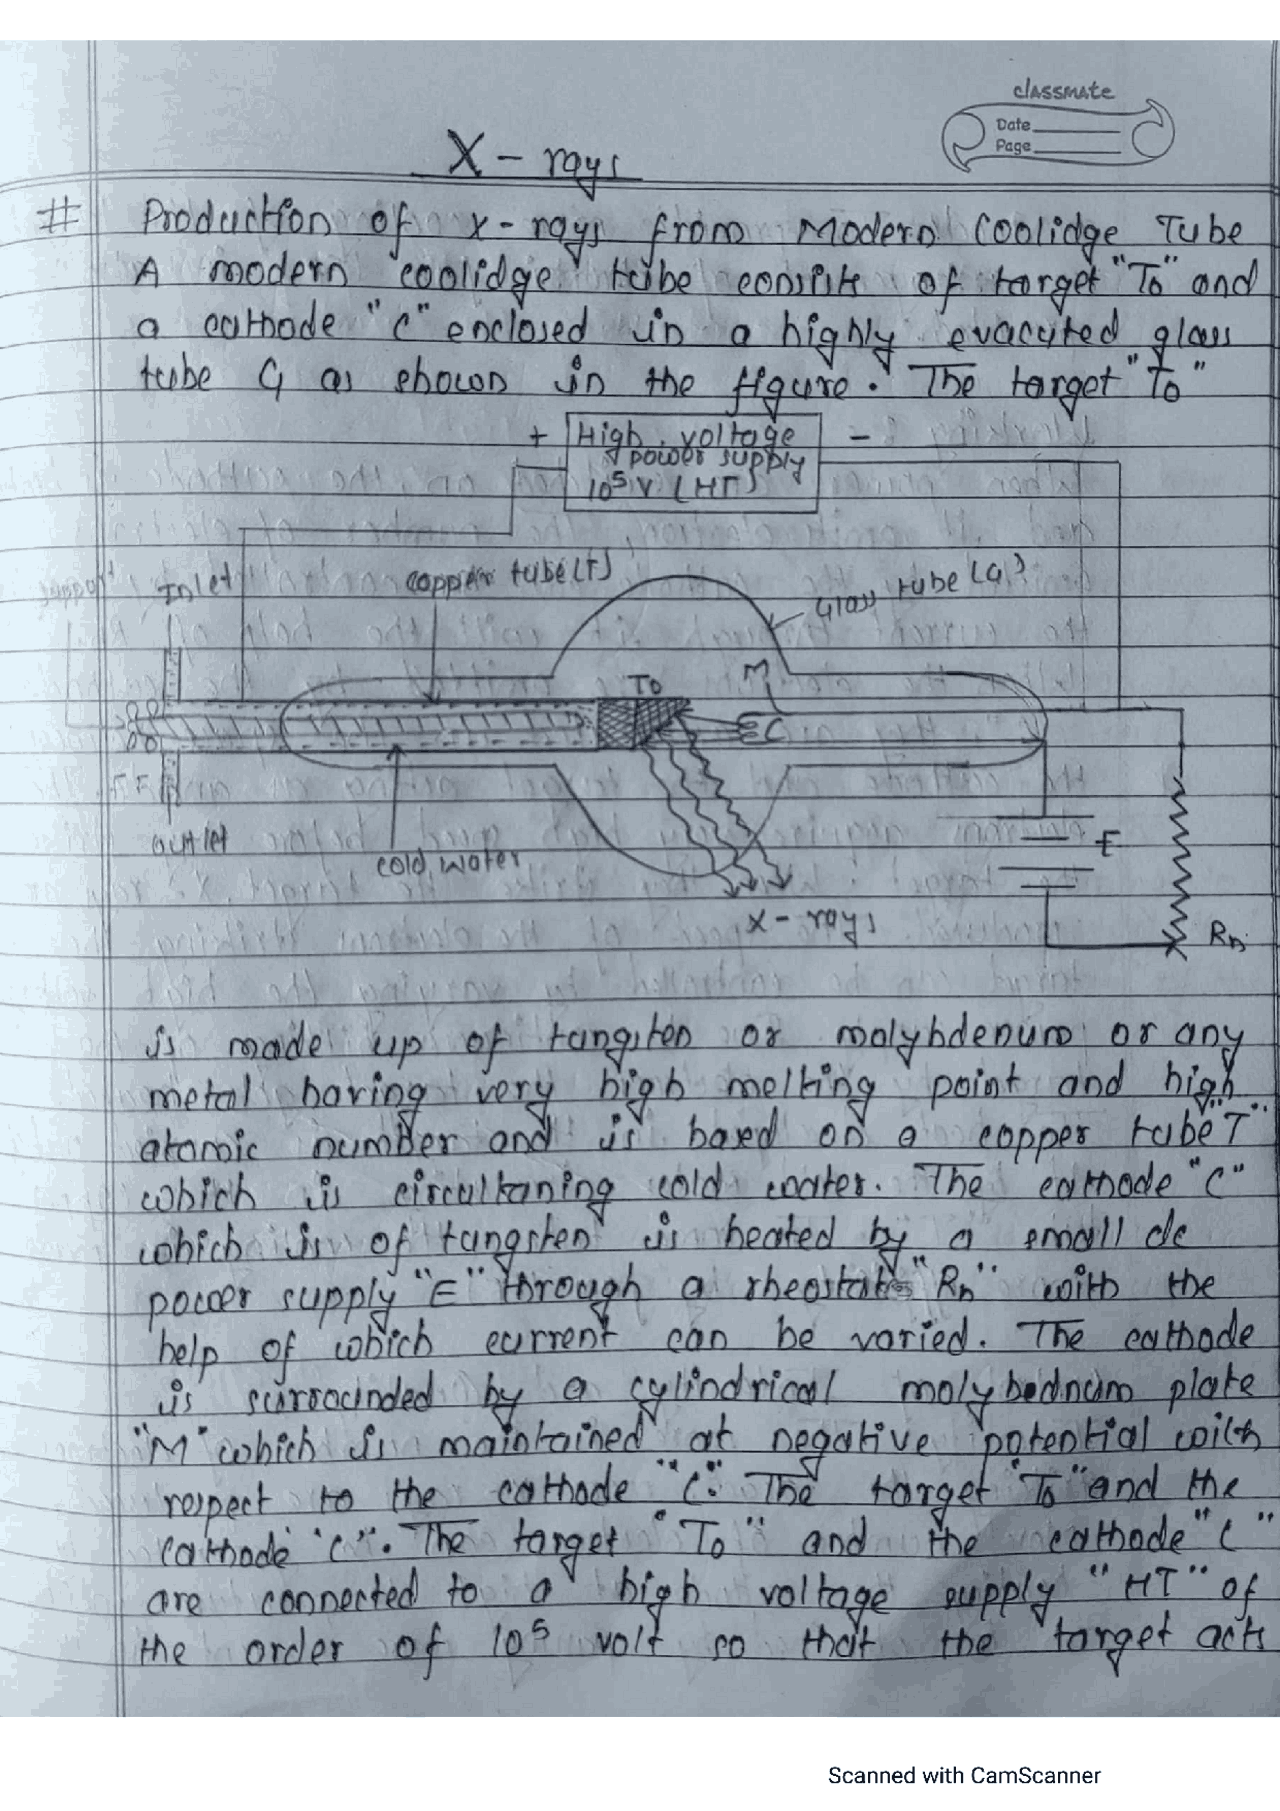 classmate
Date
Page
X - rays
# Production of x-rays from Modern Coolidge Tube
A modern coolidge tube consists of target "To" and
a cathode "C" enclosed in a highly evacuted glass
tube G as shown in the figure. The target "To"
+ High voltage -
power supply
10⁵ V (HT)
Inlet
copper tube (T)
Glass tube (G)
To
M
C
outlet
cold water
E
X - rays
Rh
is made up of tungsten or molybdenum or any
metal having very high melting point and high
atomic number and is based on a copper tube "T"
which is circultaning cold water. The cathode "C"
which is of tungsten is heated by a small dc
power supply "E" through a rheostat "Rh" with the
help of which current can be varied. The cathode
is surrounded by a cylindrical molybednum plate
"M" which is maintained at negative potential with
respect to the cathode "C". The target "To" and the
cathode "C". The target "To" and the cathode "C"
are connected to a high voltage supply "HT" of
the order of 10⁵ volt so that the target acts
Scanned with CamScanner